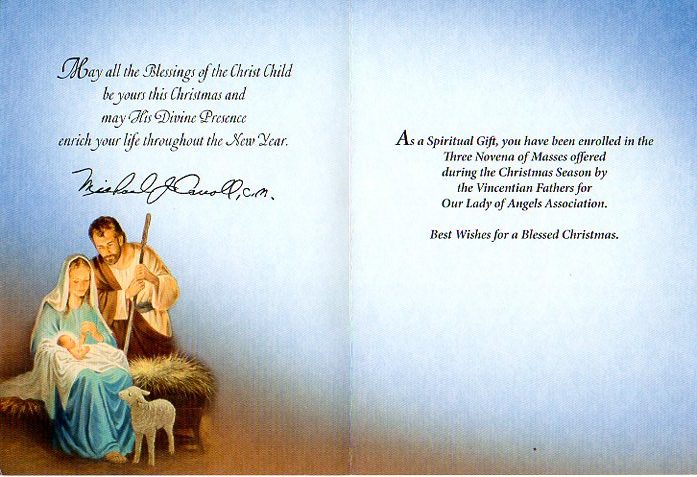 May all the Blessings of the Christ Child
be yours this Christmas and
may His Divine Presence
enrich your life throughout the New Year.
Michael J. Carroll, c.m.
As a Spiritual Gift, you have been enrolled in the
Three Novena of Masses offered
during the Christmas Season by
the Vincentian Fathers for
Our Lady of Angels Association.
Best Wishes for a Blessed Christmas.